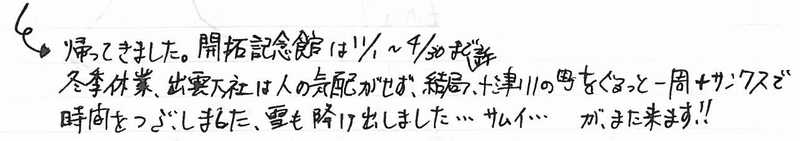 帰ってきました。開拓記念館は11/1~4/30まで
冬季休業、出雲大社は人の気配がせず、結局、十津川の町をぐるっと一周+サンクスで
時間をつぶしました、雪も降り出しました…サムイ… が、また来ます!!